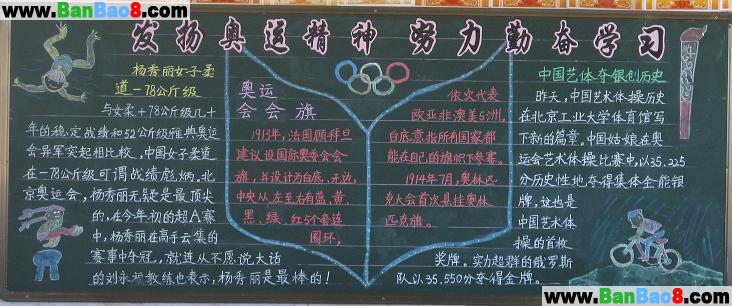 www.BanBao8.com
www.BanBao8.com
发扬奥运精神 努力勤奋学习
杨秀丽女子柔
道-78公斤级
与女柔+78公斤级几十
年的稳定战绩和52公斤级雅典奥运
会异军突起相比较,中国女子柔道
在-78公斤级可谓战绩彪炳。北
京奥运会,杨秀丽无疑是最顶尖
的,在今年初的超A赛
中,杨秀丽在高手云集的
赛事中夺冠。就连从不愿说大话
的刘永福教练也表示,杨秀丽是最棒的!
奥运
会会旗
1913年,法国顾拜旦
建议设国际奥委会会
旗,并设计为白底、无边,
中央从左至右有蓝、黄、
黑、绿、红5个套连
圆环,
依次代表
欧亚非澳美5洲。
白底意指所有国家都
能在自己的旗帜下参赛。
1914年7月,奥林匹
克大会首次悬挂奥林
匹克旗。
中国艺体夺银创历史
昨天,中国艺术体操历史
在北京工业大学体育馆写
下新的篇章。中国姑娘在奥
运会艺术体操比赛中,以35.225
分历史性地夺得集体全能银
牌,这也是
中国艺术体
操的首枚
奖牌。实力超群的俄罗斯
队以35.550分夺得金牌。
www.BanBao8.com